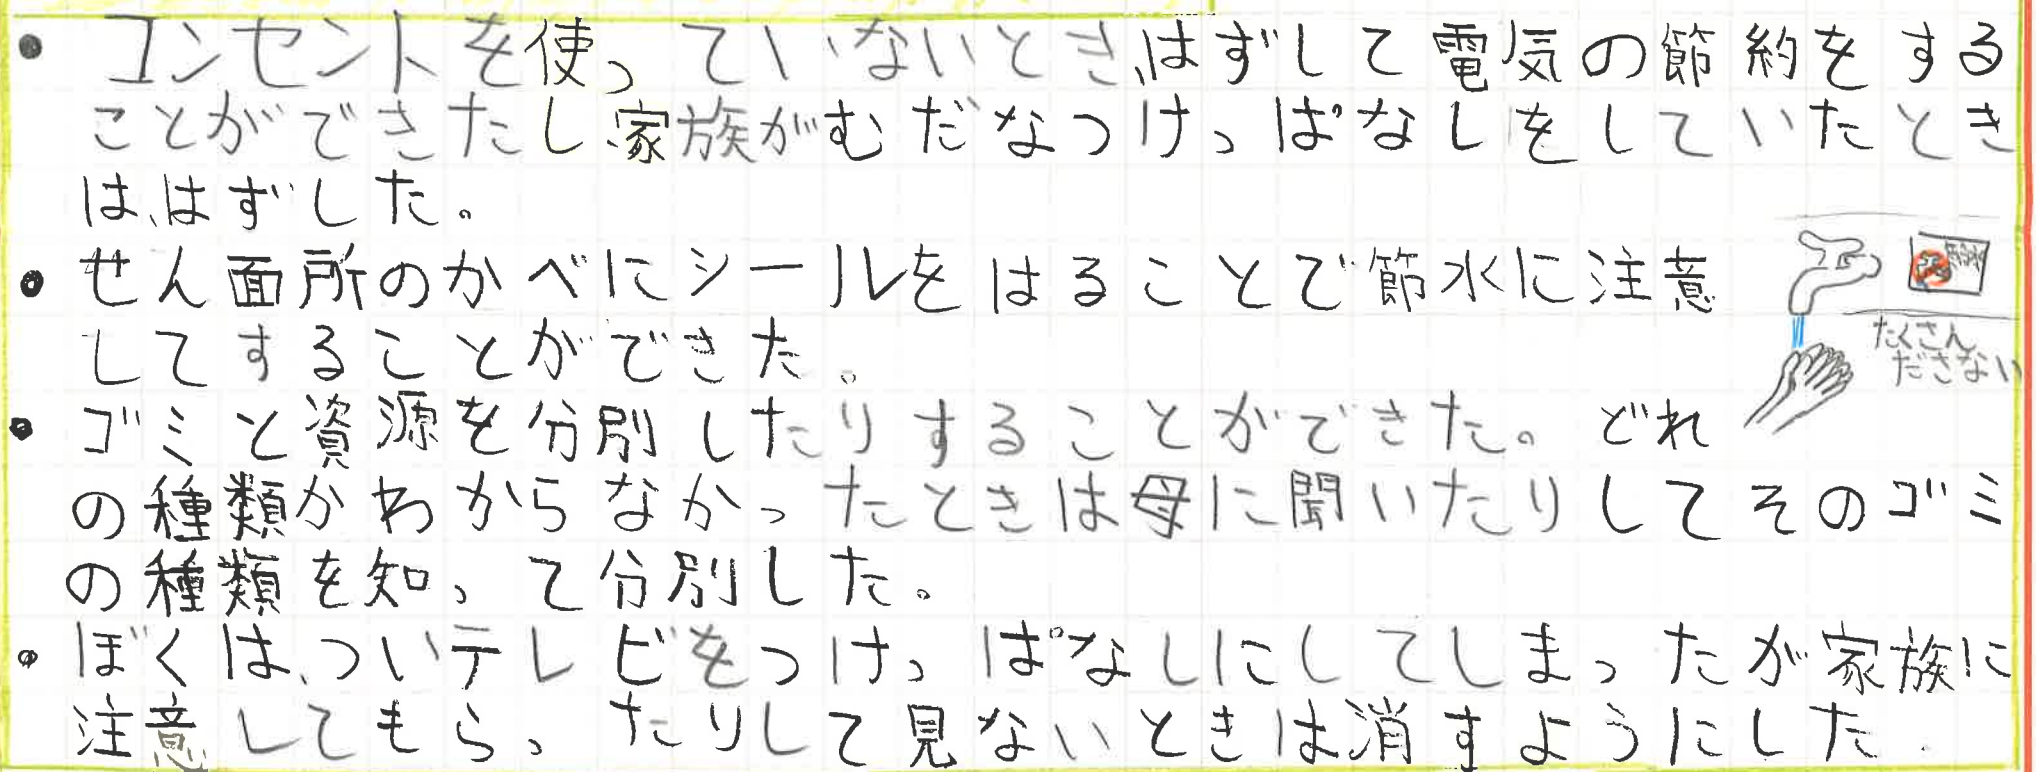 ● コンセントを使っていないとき、はずして電気の節約をする
ことができたし、家族がむだなつけっぱなしをしていたとき
は、はずした。
● せん面所のかべにシールをはることで節水に注意
してすることができた。
たくさん
ださない
● ゴミと資源を分別したりすることができた。どれ
の種類かわからなかったときは母に聞いたりしてそのゴミ
の種類を知って分別した。
● ぼくは、ついテレビをつけっぱなしにしてしまったが家族に
注意してもらったりして見ないときは消すようにした.